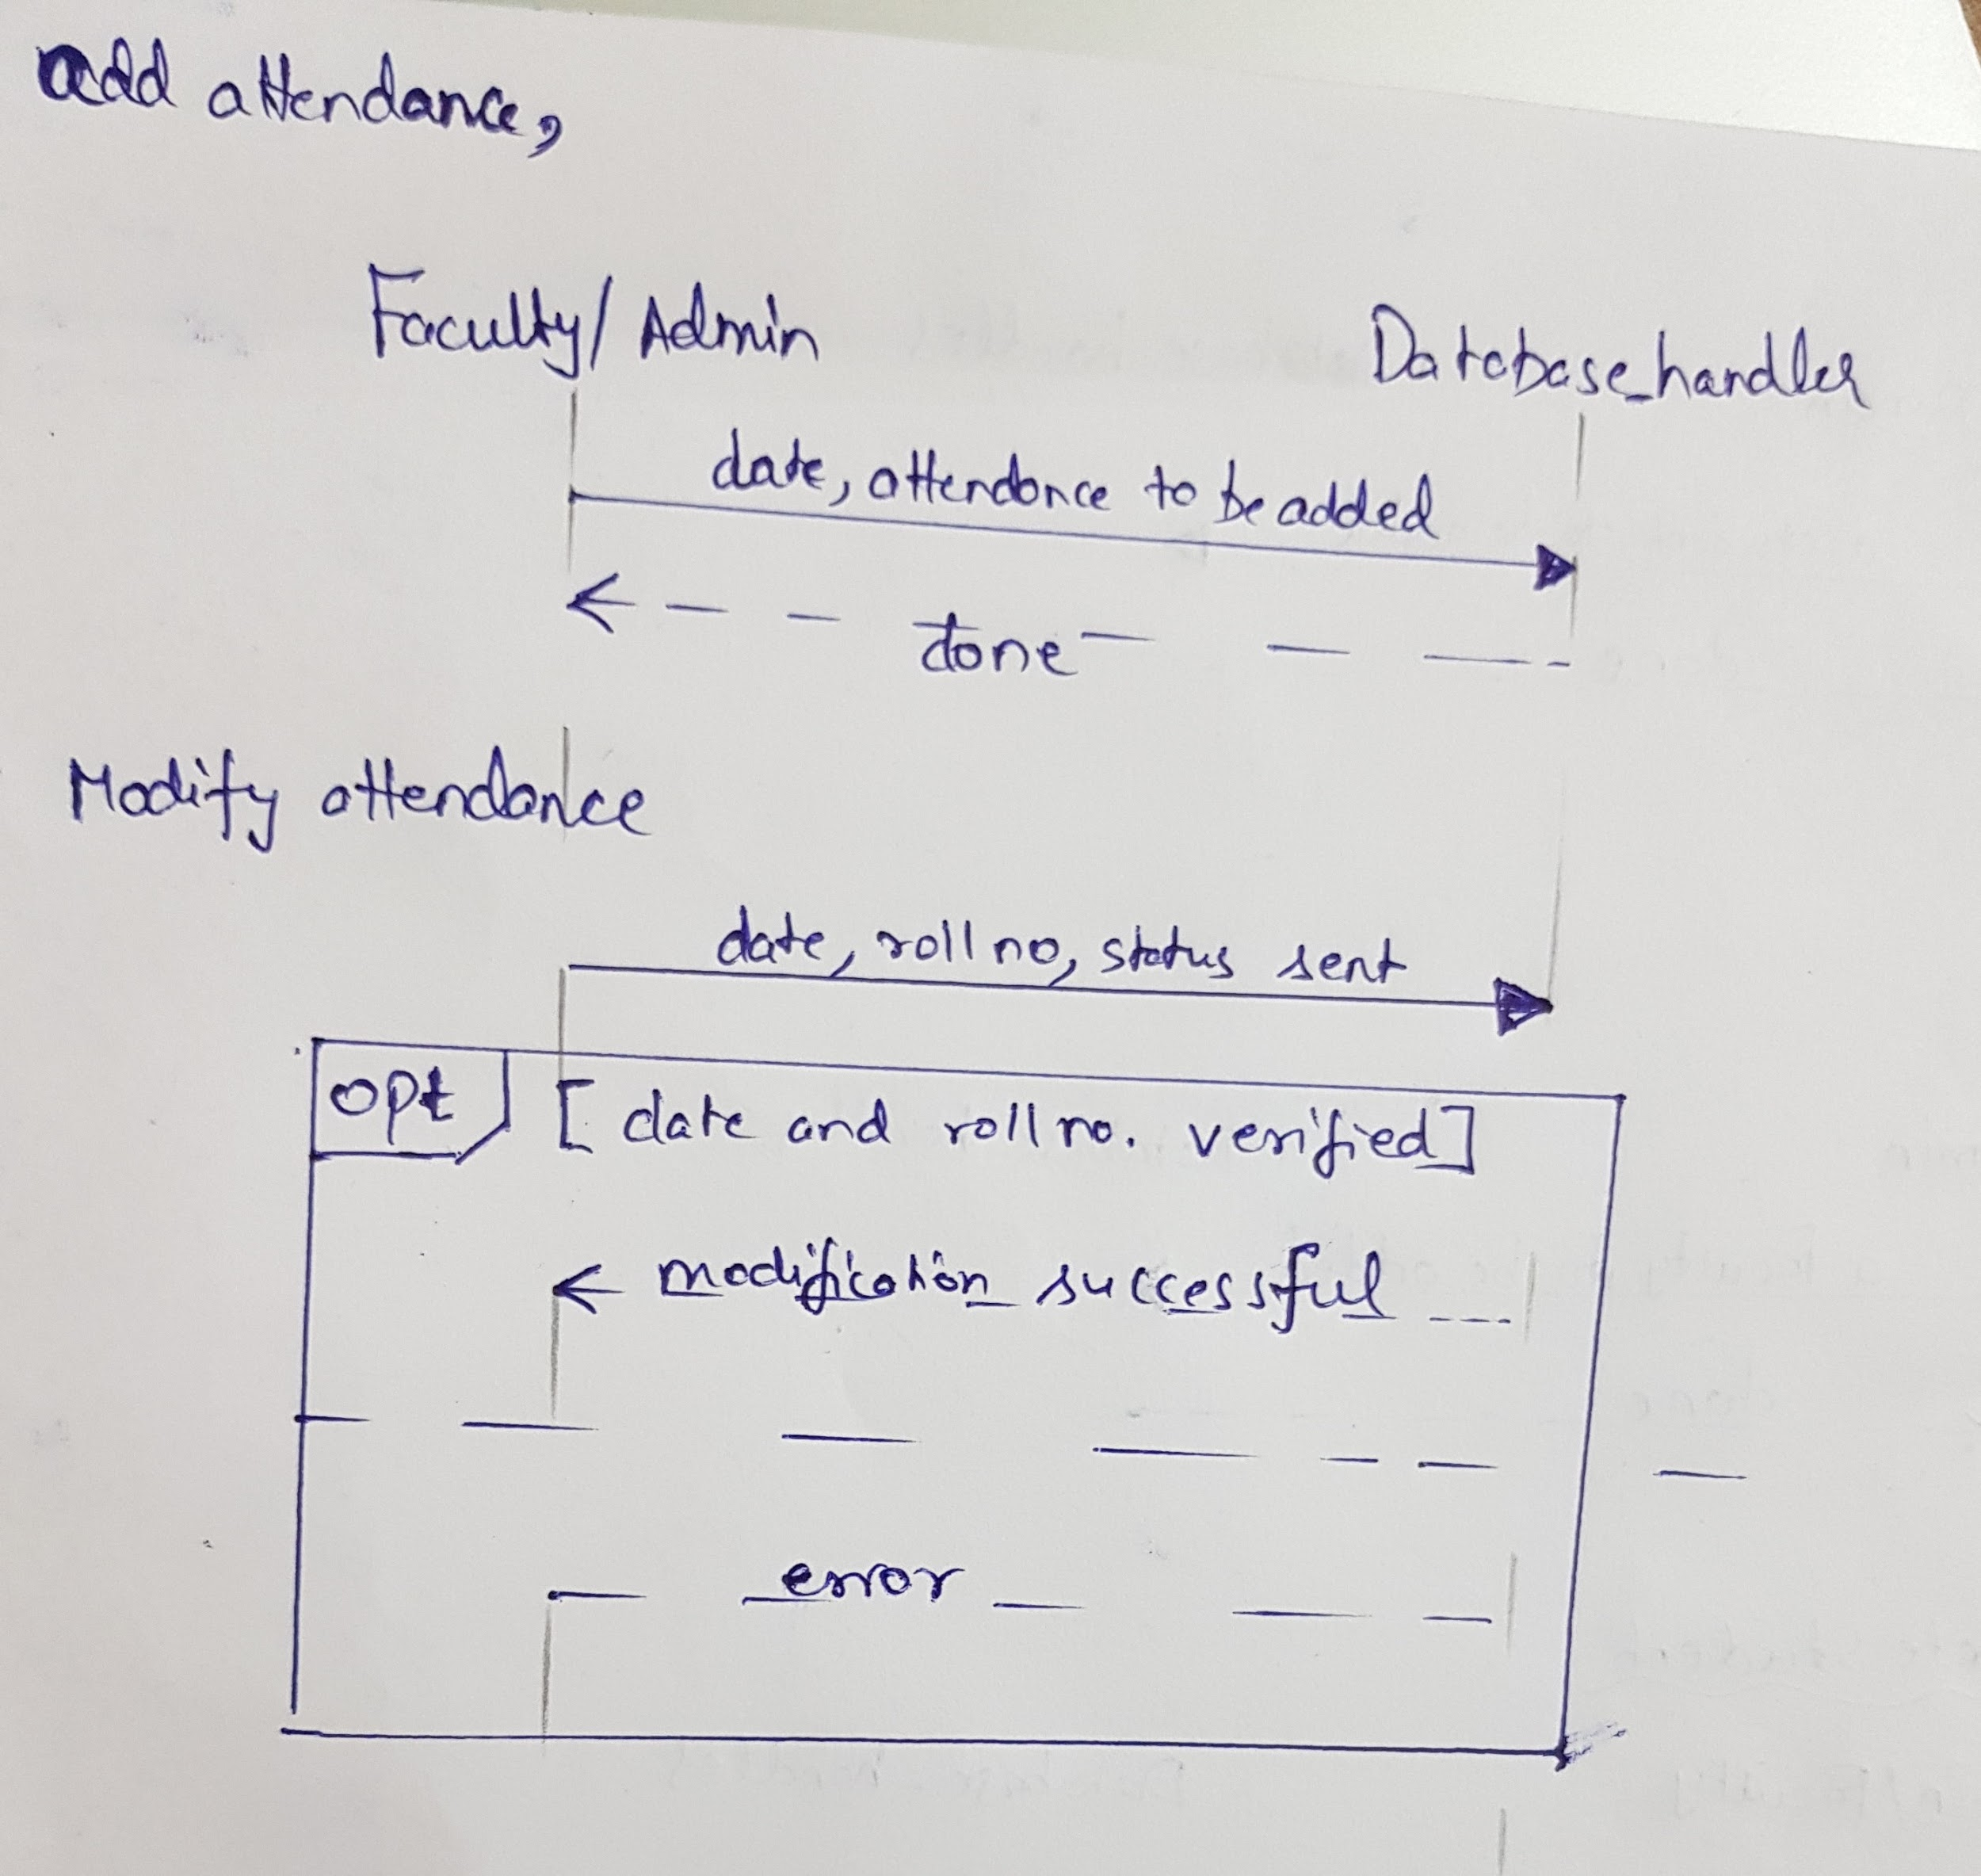 add attendance,
Faculty/Admin
Database_handler
date, attendance to be added
done
Modify attendance
date, roll no, status sent
opt [date and roll no. verified]
modification successful
error